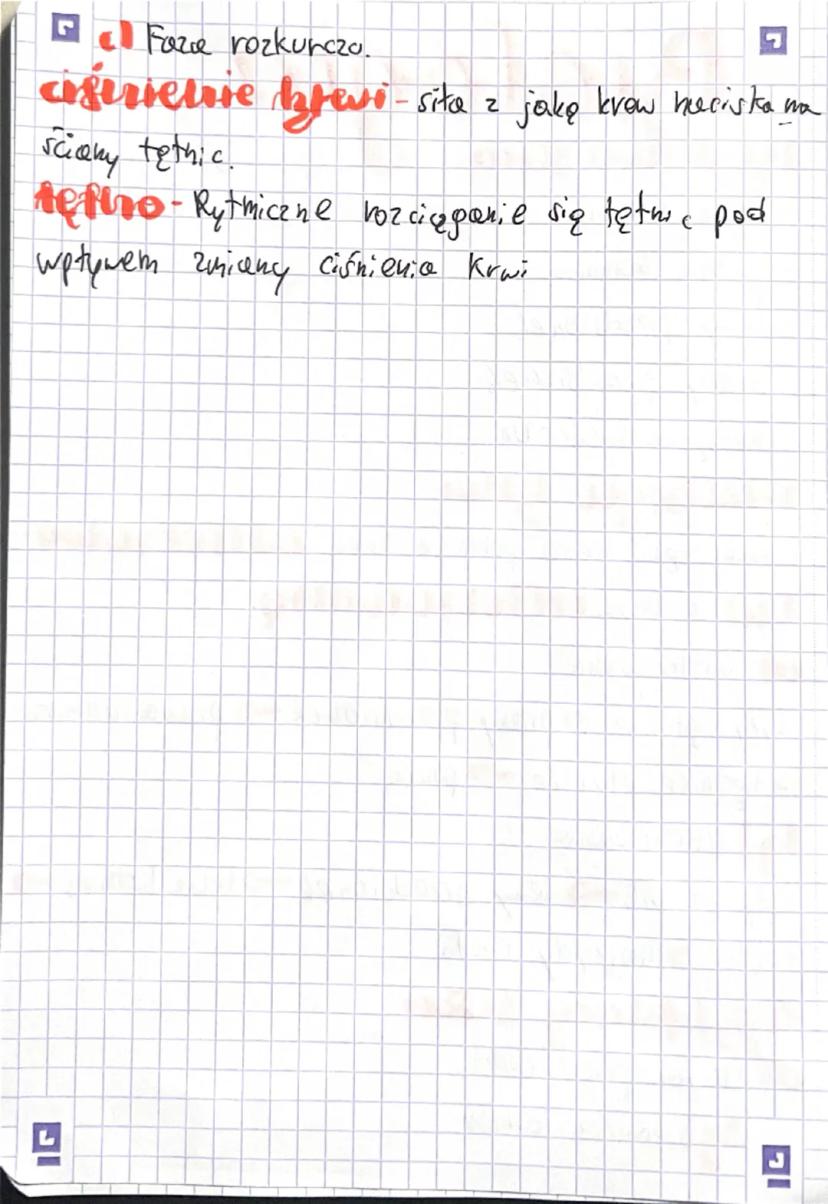 c) Faza rozkurczo.
ciśnienie krwi - siła z jaką krew naciska na
ściany tętnic.
tętno - Rytmiczne rozciąganie się tętnic pod
wpływem zmiany ciśnienia krwi